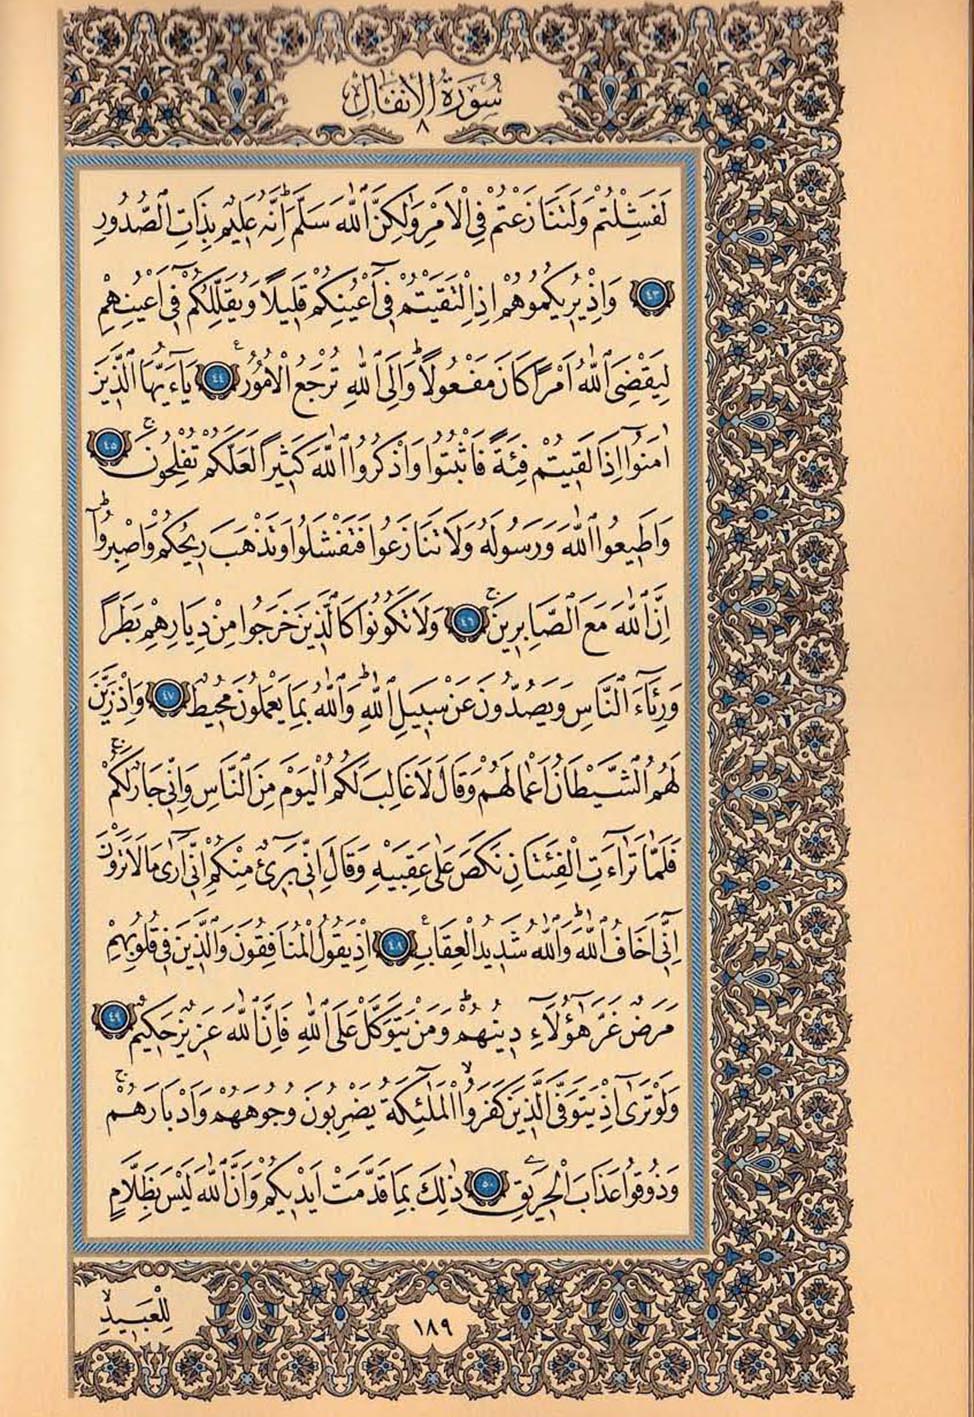 سُورَةُ الْأَنْفَالِ
٨
لَفَشِلْتُمْ وَلَتَنَازَعْتُمْ فِي الْاَمْرِ وَلٰكِنَّ اللّٰهَ سَلَّمَ اِنَّهُ عَلِيمٌ بِذَاتِ الصُّدُورِ
٤٣ وَاِذْ يُرِيكُمُوهُمْ اِذِ الْتَقَيْتُمْ فِٓي اَعْيُنِكُمْ قَلِيلًا وَيُقَلِّلُكُمْ فِٓي اَعْيُنِهِمْ
لِيَقْضِيَ اللّٰهُ اَمْرًا كَانَ مَفْعُولًا وَاِلَى اللّٰهِ تُرْجَعُ الْاُمُورُ ٤٤ يَٓا ءَيُّهَا الَّذِينَ
اٰمَنُٓوا اِذَا لَقِيتُمْ فِئَةً فَاثْبُتُوا وَاذْكُرُوا اللّٰهَ كَثِيرًا لَعَلَّكُمْ تُفْلِحُونَ ٤٥
وَاَطِيعُوا اللّٰهَ وَرَسُولَهُ وَلَا تَنَازَعُوا فَتَفْشَلُوا وَتَذْهَبَ رِيحُكُمْ وَاصْبِرُوا
اِنَّ اللّٰهَ مَعَ الصَّابِرِينَ ٤٦ وَلَا تَكُونُوا كَالَّذِينَ خَرَجُوا مِنْ دِيَارِهِمْ بَطَرًا
وَرِئَٓاءَ النَّاسِ وَيَصُدُّونَ عَنْ سَبِيلِ اللّٰهِ وَاللّٰهُ بِمَا يَعْمَلُونَ مُحِيطٌ ٤٧ وَاِذْ زَيَّنَ
لَهُمُ الشَّيْطَانُ اَعْمَالَهُمْ وَقَالَ لَا غَالِبَ لَكُمُ الْيَوْمَ مِنَ النَّاسِ وَاِنِّي جَارٌ لَكُمْ
فَلَمَّا تَرَٓاءَتِ الْفِئَتَانِ نَكَصَ عَلٰى عَقِبَيْهِ وَقَالَ اِنِّي بَرِٓيءٌ مِنْكُمْ اِنِّٓي اَرٰى مَا لَا تَرَوْنَ
اِنِّٓي اَخَافُ اللّٰهَ وَاللّٰهُ شَدِيدُ الْعِقَابِ ٤٨ اِذْ يَقُولُ الْمُنَافِقُونَ وَالَّذِينَ فِي قُلُوبِهِمْ
مَرَضٌ غَرَّ هٰٓؤُلَٓاءِ دِينُهُمْ وَمَنْ يَتَوَكَّلْ عَلَى اللّٰهِ فَاِنَّ اللّٰهَ عَزِيزٌ حَكِيمٌ ٤٩
وَلَوْ تَرٰٓى اِذْ يَتَوَفَّى الَّذِينَ كَفَرُوا الْمَلٰٓئِكَةُ يَضْرِبُونَ وُجُوهَهُمْ وَاَدْبَارَهُمْ
وَذُوقُوا عَذَابَ الْحَرِيقِ ٥٠ ذٰلِكَ بِمَا قَدَّمَتْ اَيْدِيكُمْ وَاَنَّ اللّٰهَ لَيْسَ بِظَلَّامٍ
لِلْعَبِيدِ
١٨٩